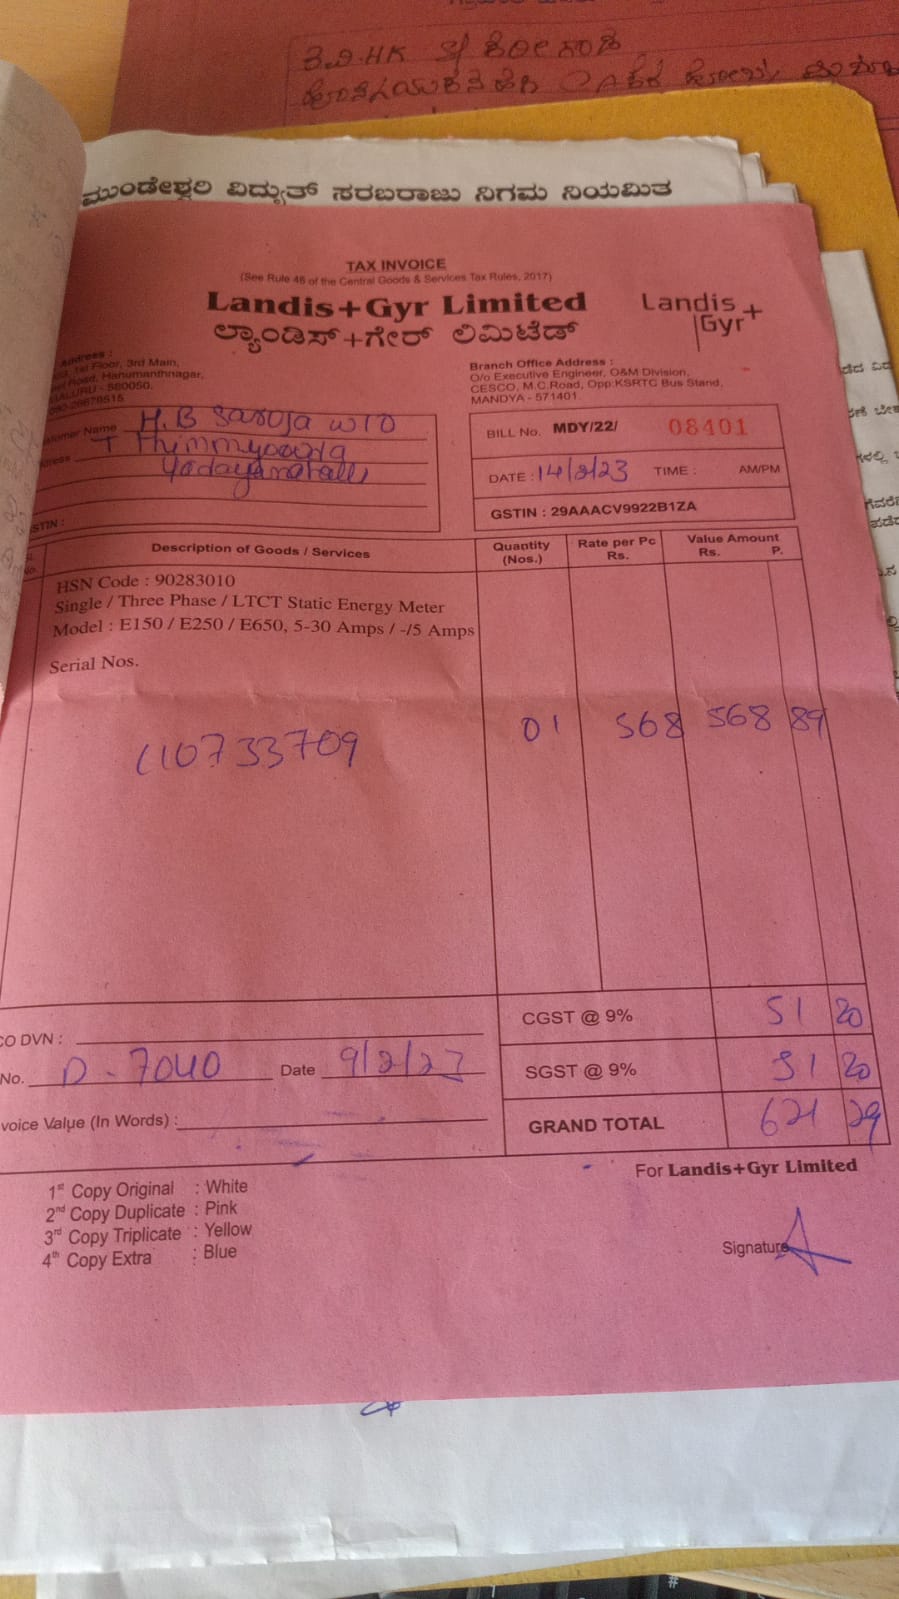 ಮುಂಡೇಶ್ವರಿ ವಿದ್ಯುತ್ ಸರಬರಾಜು ನಿಗಮ ನಿಯಮಿತ
TAX INVOICE
(See Rule 46 of the Central Goods & Services Tax Rules, 2017)
Landis+Gyr Limited
ಲ್ಯಾಂಡಿಸ್+ಗೇರ್ ಲಿಮಿಟೆಡ್
Landis+
Gyr
Address :
1st Floor, 3rd Main,
Road, Hanumanthnagar,
- 560050.
Branch Office Address :
O/o Executive Engineer, O&M Division,
CESCO, M.C.Road, Opp:KSRTC Bus Stand,
MANDYA - 571401.
Name H.B Saroja W/O
T Thimmegowda
BILL No. MDY/22/ 08401
DATE : 14/2/23 TIME : AM/PM
GSTIN : 29AAACV9922B1ZA
Description of Goods / Services
Quantity (Nos.)
Rate per Pc Rs.
Value Amount Rs. P.
HSN Code : 90283010
Single / Three Phase / LTCT Static Energy Meter
Model : E150 / E250 / E650, 5-30 Amps / -/5 Amps
Serial Nos.
110733709 01 568 568 89
CGST @ 9% 51 20
CO DVN :
No. D-7040 Date 9/2/23
SGST @ 9% 51 20
voice Value (In Words) :
GRAND TOTAL 671 29
For Landis+Gyr Limited
1st Copy Original : White
2nd Copy Duplicate : Pink
3rd Copy Triplicate : Yellow
4th Copy Extra : Blue
Signature